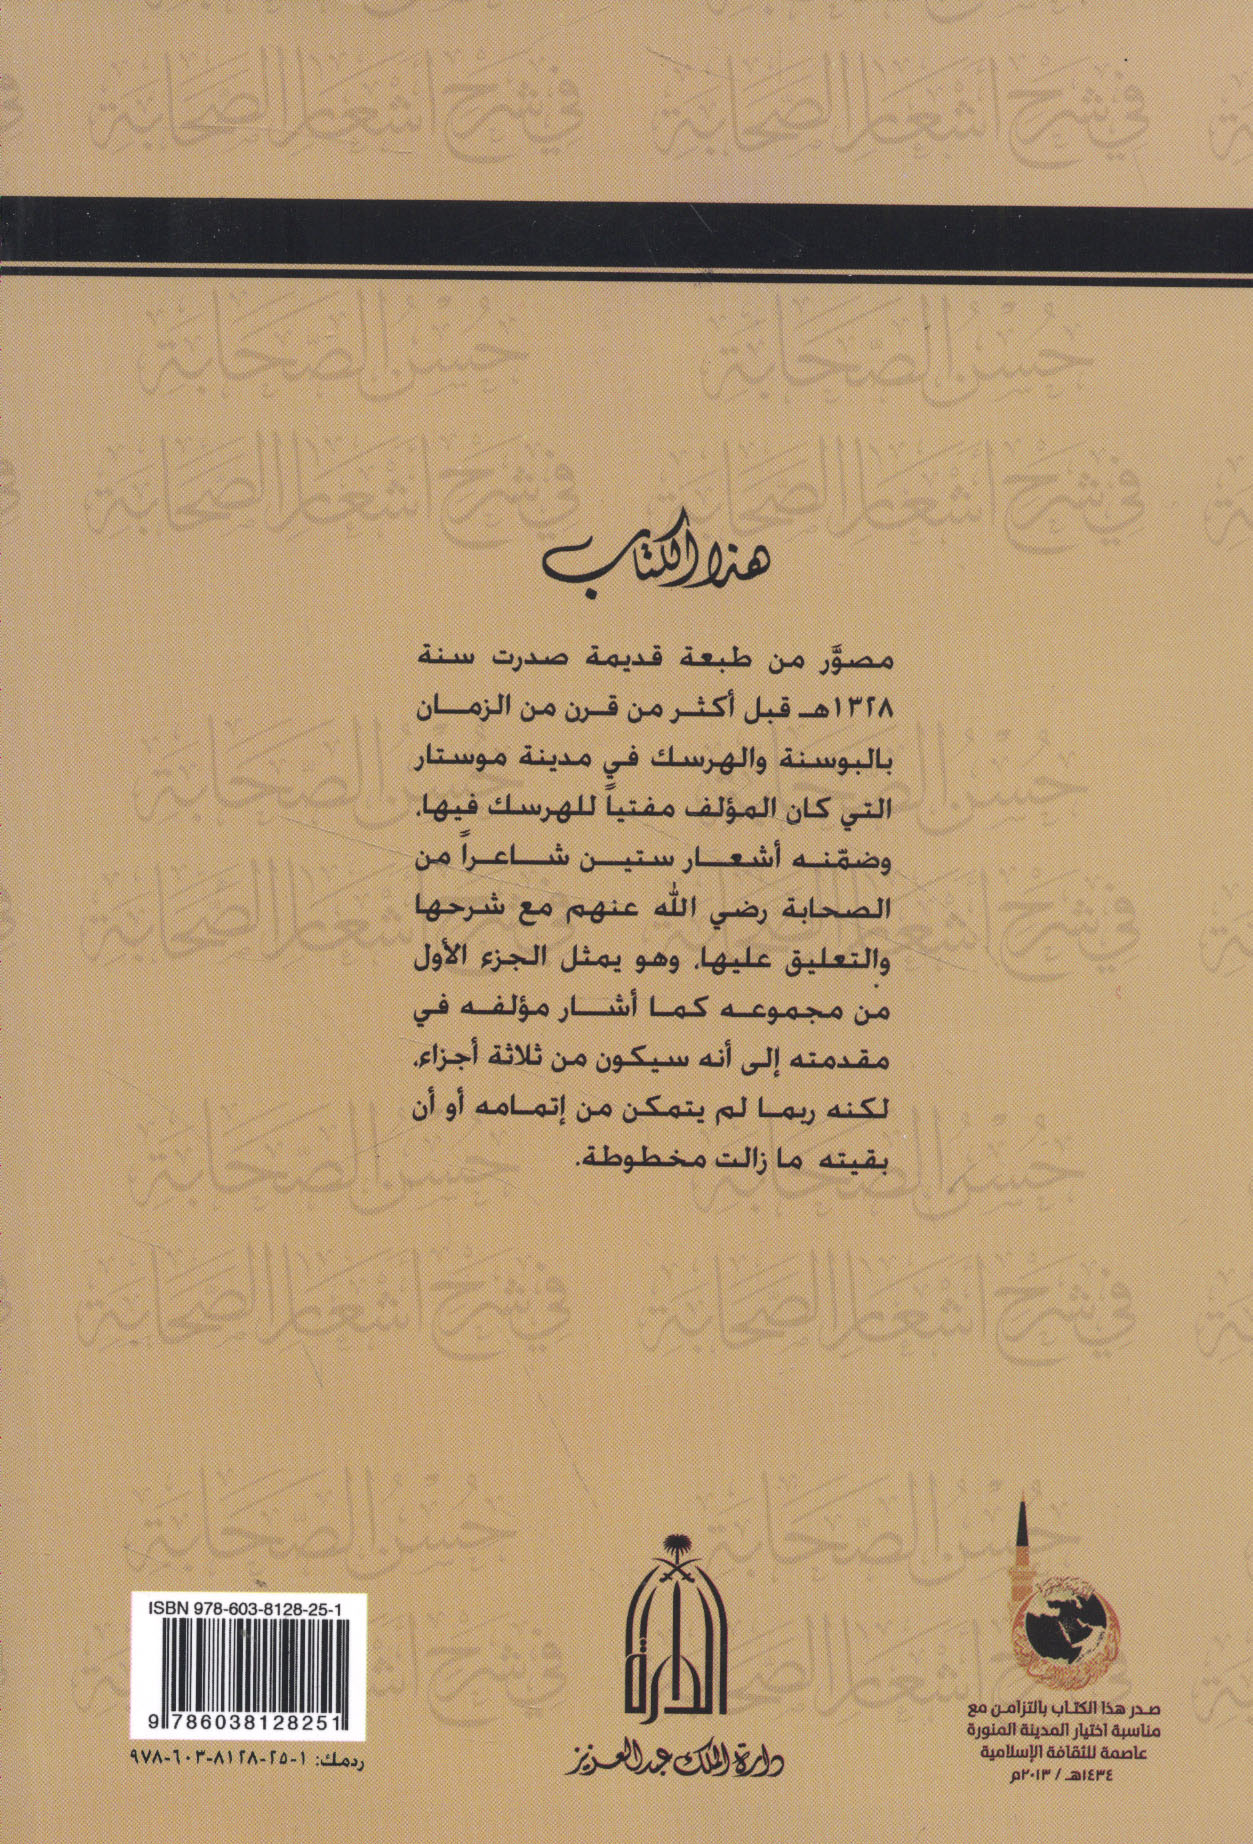 هذا الكتاب
مصوَّر من طبعة قديمة صدرت سنة
١٣٢٨هـ قبل أكثر من قرن من الزمان
بالبوسنة والهرسك في مدينة موستار
التي كان المؤلف مفتياً للهرسك فيها،
وضمّنه أشعار ستين شاعراً من
الصحابة رضي الله عنهم مع شرحها
والتعليق عليها، وهو يمثل الجزء الأول
من مجموعه كما أشار مؤلفه في
مقدمته إلى أنه سيكون من ثلاثة أجزاء،
لكنه ربما لم يتمكن من إتمامه أو أن
بقيته ما زالت مخطوطة.
صدر هذا الكتاب بالتزامن مع
مناسبة اختيار المدينة المنورة
عاصمة للثقافة الإسلامية
١٤٣٤هـ / ٢٠١٣م
الدارة
دارة الملك عبدالعزيز
ISBN 978-603-8128-25-1
9 786038 128251
ردمك: ١-٢٥-٨١٢٨-٦٠٣-٩٧٨
حُسْنُ الصَّحَابَة
في شرح أشعار الصَّحَابَة